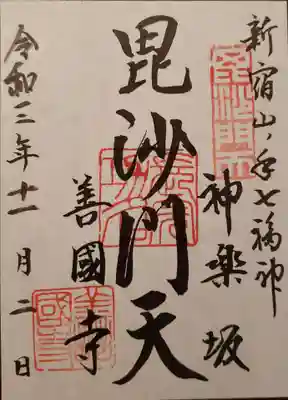 新宿山ノ手七福神
毘沙門天
神楽坂
毘沙門天
善國寺
令和三年十一月二日